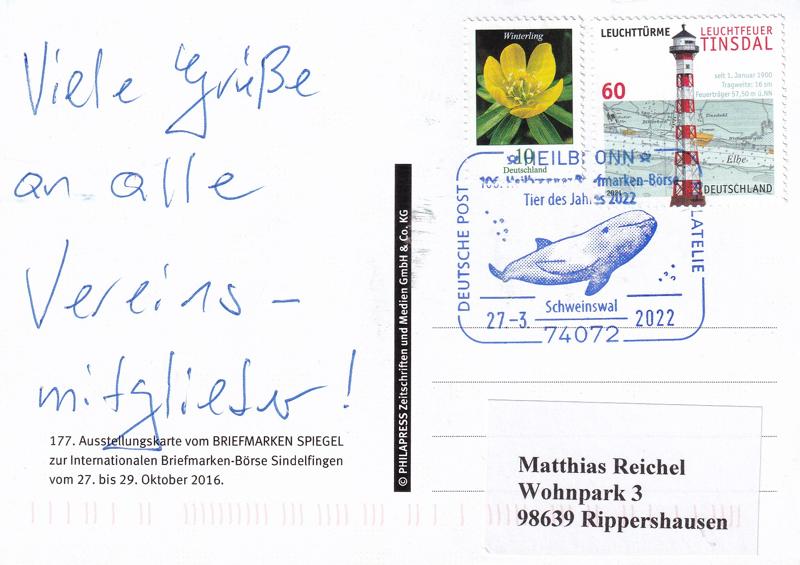 Viele Grüße
an alle
Vereins-
mitglieder!
177. Ausstellungskarte vom BRIEFMARKEN SPIEGEL
zur Internationalen Briefmarken-Börse Sindelfingen
vom 27. bis 29. Oktober 2016.
© PHILAPRESS Zeitschriften und Medien GmbH & Co. KG
Winterling
10
Deutschland
LEUCHTTÜRME
LEUCHTFEUER
TINSDAL
seit 1. Januar 1900
Tragweite: 16 sm
Feuerträger 57,50 m ü.NN
60
Elbe
2021
DEUTSCHLAND
HEILBRONN
Briefmarken-Börse
Tier des Jahres 2022
DEUTSCHE POST
PHILATELIE
Schweinswal
27.-3. 2022
74072
Matthias Reichel
Wohnpark 3
98639 Rippershausen